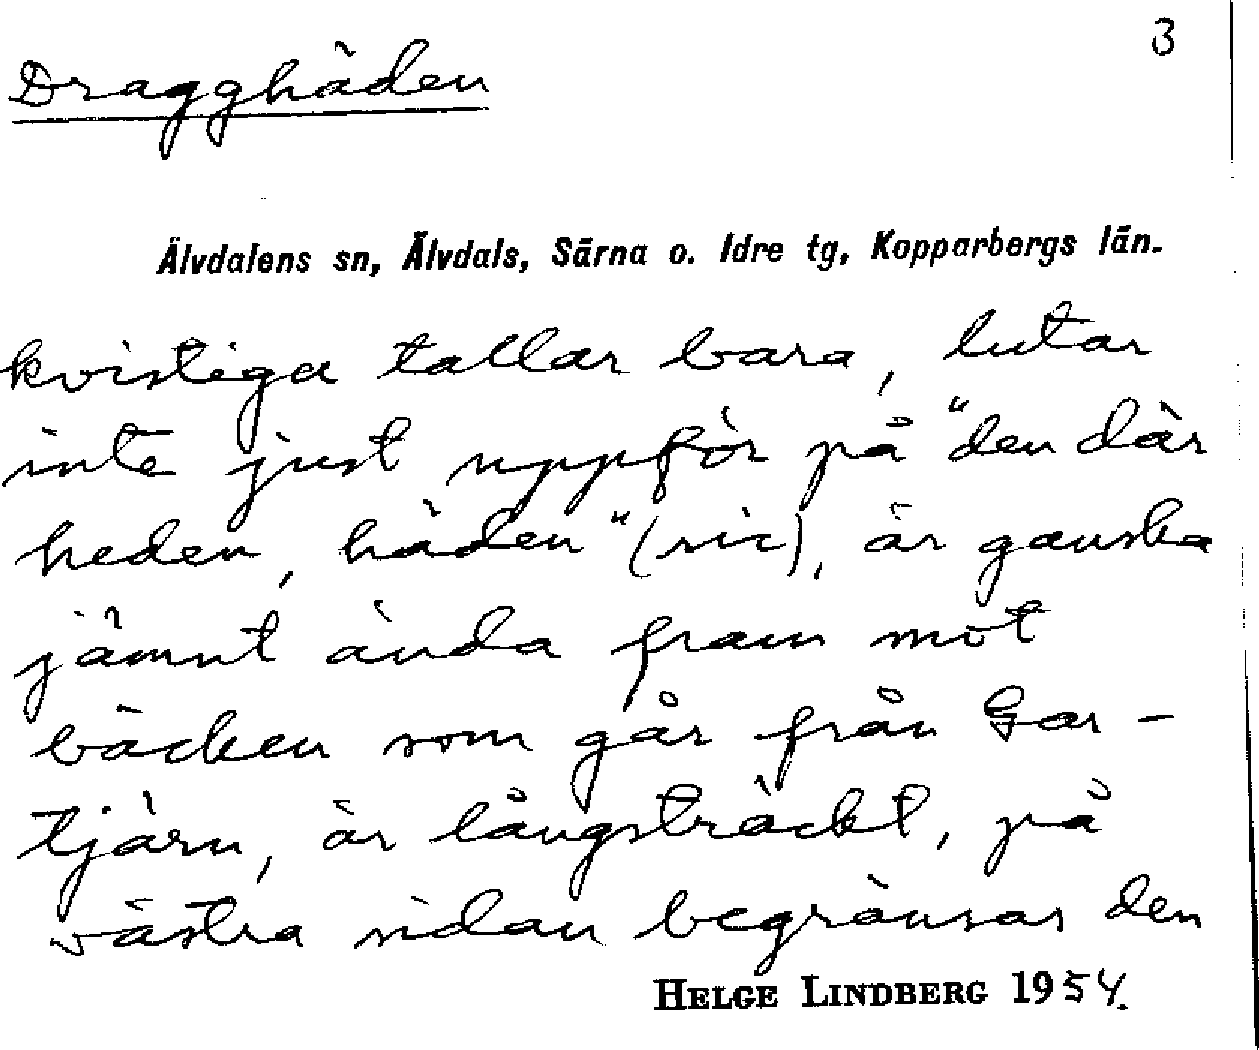 3
Dragghäden
Älvdalens sn, Älvdals, Särna o. Idre tg, Kopparbergs län.
kvistiga tallar bara, lutar
inte just uppför på "den där
heden, häden" (sic), är ganska
jämnt ända fram mot
bäcken som går från Gar-
tjärn, är långsträckt, på
västra sidan begränsas den
HELGE LINDBERG 1954.